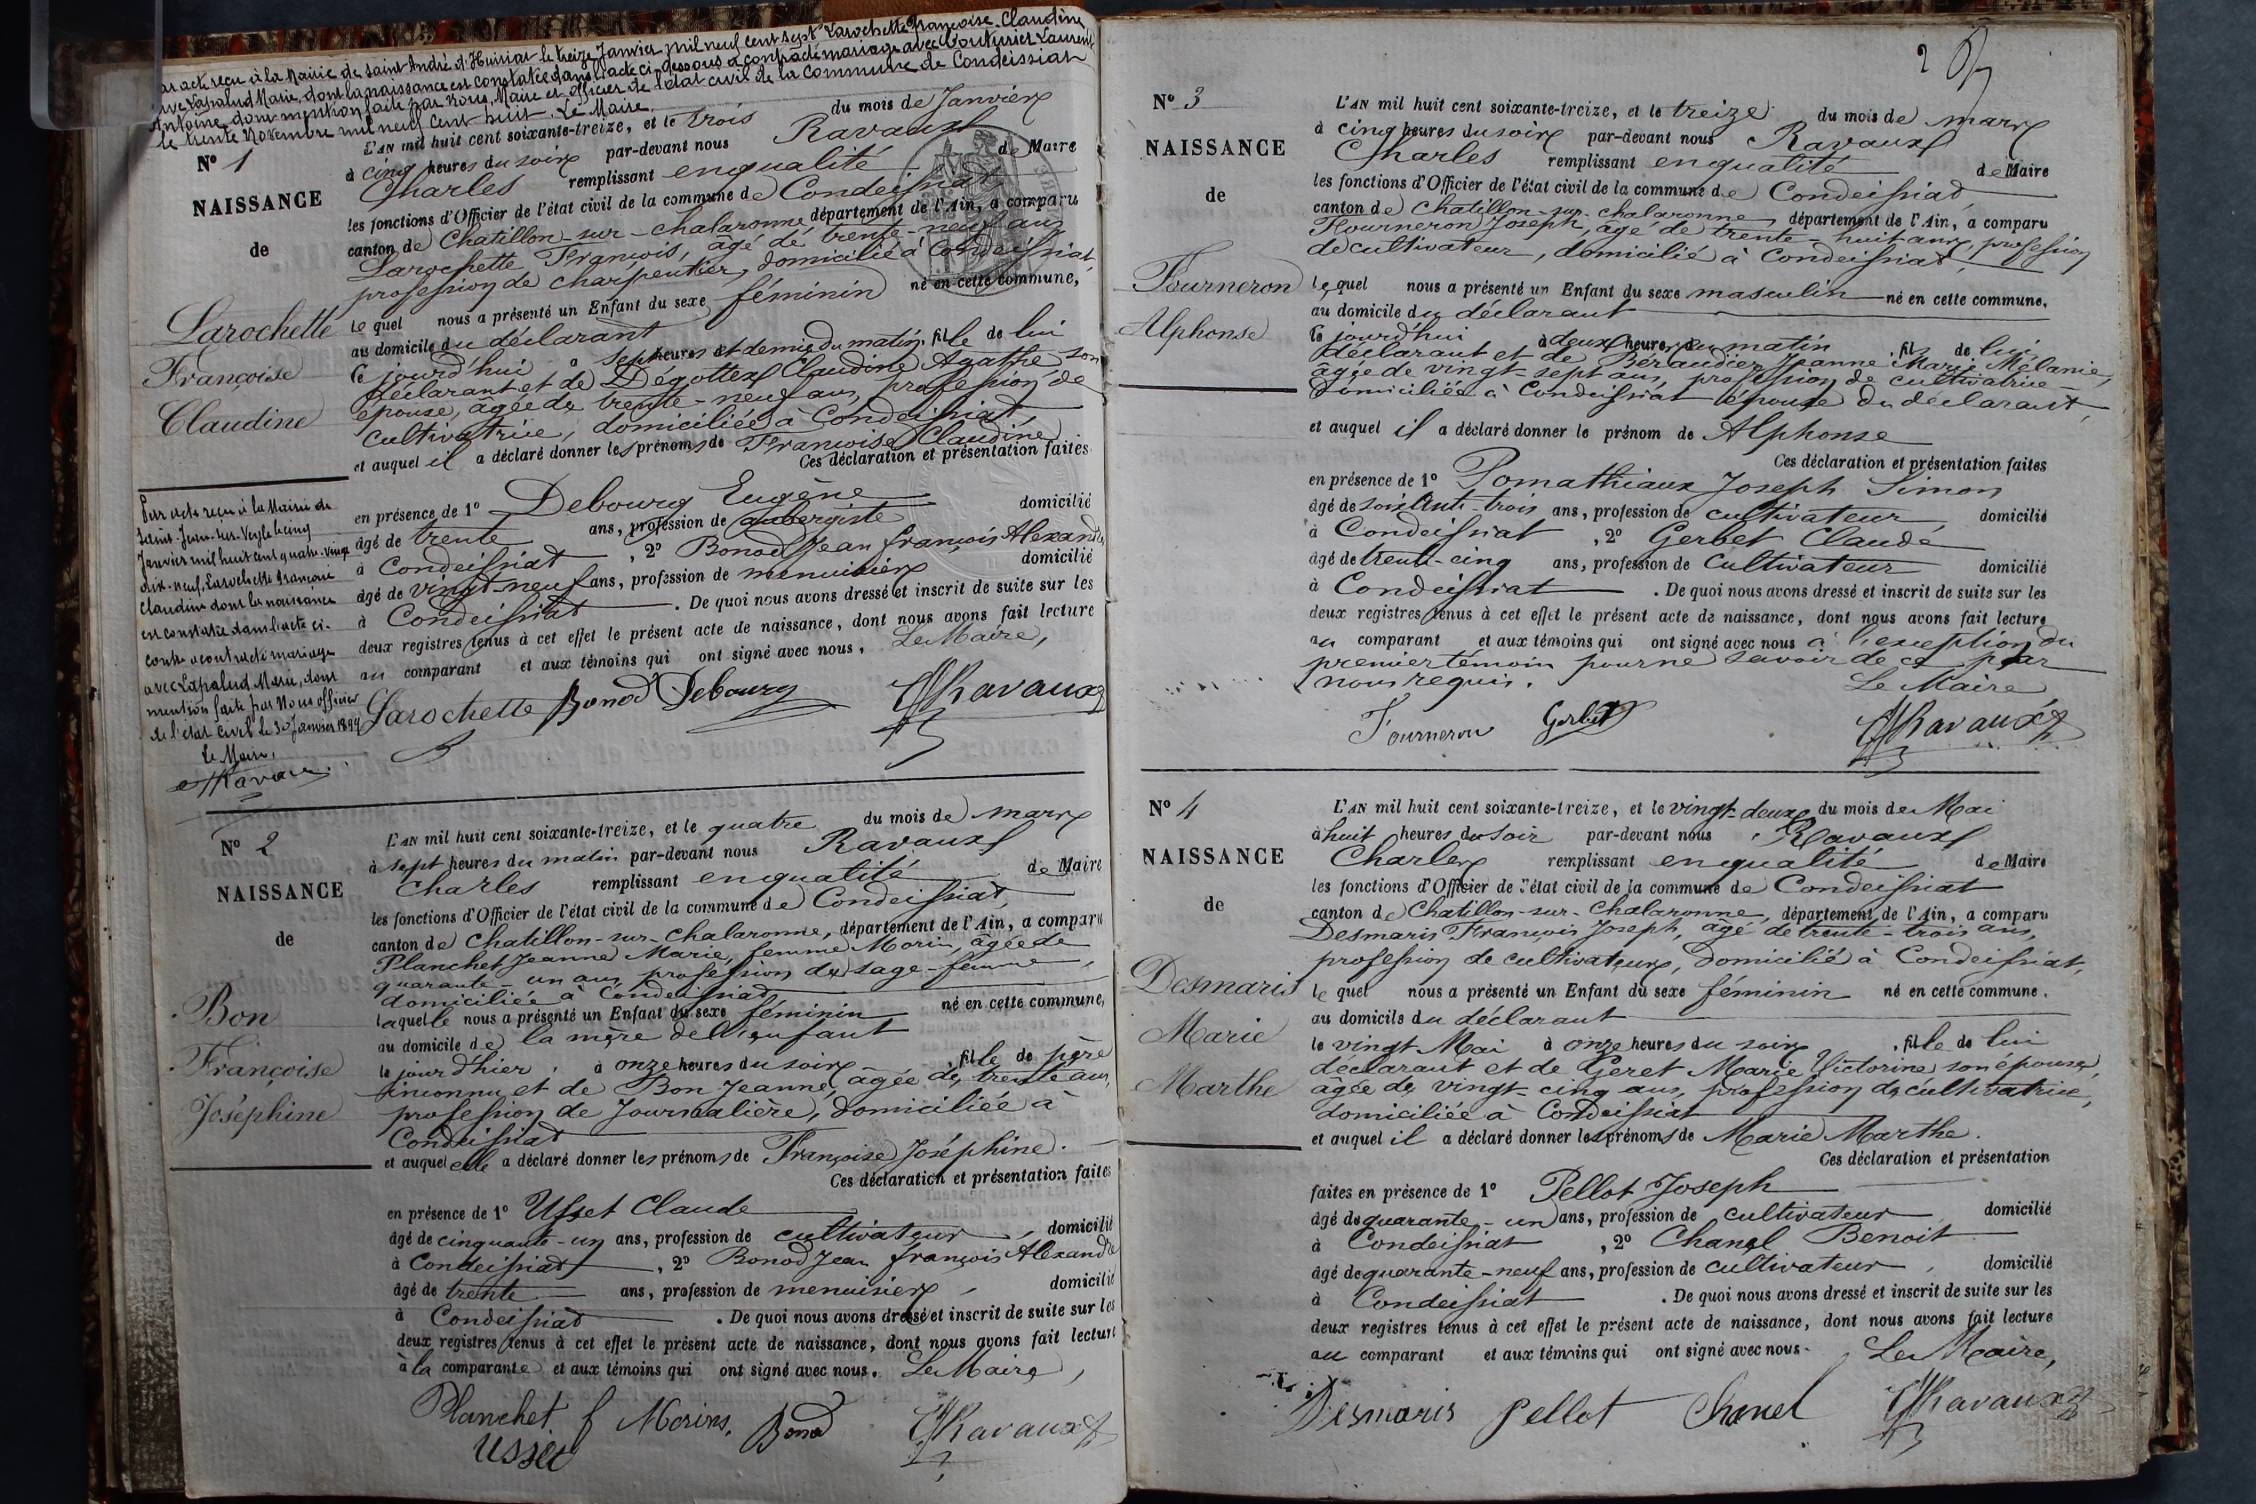 Par acte reçu à la Mairie de Saint André d'Huiriat le treize Janvier mil neuf cent sept Larochette Françoise Claudine
veuve Lapalud Marie, dont la naissance est constatée dans l'acte ci-dessous a contracté mariage avec Couturier Laurent
Antoine, dont mention faite par Nous, Maire et officier de l'état civil de la Commune de Condeissiat
le trente Novembre mil neuf cent huit. Le Maire.
N° 1
NAISSANCE
de
Larochette
Françoise
Claudine
L'AN mil huit cent soixante-treize, et le trois du mois de Janvier
à cinq heures du soir par-devant nous Ravaux
Charles remplissant en qualité de Maire
les fonctions d'Officier de l'état civil de la commune de Condeissiat
canton de Chatillon-sur-chalaronne département de l'Ain, a comparu
Larochette François, âgé de trente-neuf ans
profession de charpentier, domicilié à Condeissiat,
le quel nous a présenté un Enfant du sexe féminin né en cette commune,
au domicile du déclarant
Ce jourd'hui à sept heures et demie du matin, fille de lui
déclarant et de Dégottex Claudine Agathe son
épouse, âgée de trente-neuf ans, profession de
cultivatrice, domiciliée à Condeissiat
et auquel il a déclaré donner les prénoms de Françoise Claudine
Ces déclaration et présentation faites
en présence de 1° Debourg Eugène
âgé de trente ans, profession de aubergiste domicilié
à Condeissiat, 2° Bonod Jean françois Alexandre
âgé de vingt-neuf ans, profession de menuisier domicilié
à Condeissiat. De quoi nous avons dressé et inscrit de suite sur les
deux registres tenus à cet effet le présent acte de naissance, dont nous avons fait lecture
au comparant et aux témoins qui ont signé avec nous. Le Maire,
Larochette Bonod Debourg Ravaux
Par acte reçu à la Mairie de
Saint-Jean-sur-Veyle le cinq
Janvier mil huit cent quatre-vingt
dix-neuf, Larochette françoise
Claudine dont la naissance
est constatée dans l'acte ci-
contre a contracté mariage
avec Lapalud Marie, dont
mention faite par Nous officier
de l'état civil le 30 Janvier 1899
Le Maire,
Ravaux
N° 2
NAISSANCE
de
Bon
Françoise
Joséphine
L'AN mil huit cent soixante-treize, et le quatre du mois de mars
à sept heures du matin par-devant nous Ravaux
Charles remplissant en qualité de Maire
les fonctions d'Officier de l'état civil de la commune de Condeissiat,
canton de Chatillon-sur-Chalaronne, département de l'Ain, a comparu
Planchet Jeanne Marie, femme Morin, âgée de
quarante-un ans, profession de sage-femme,
domiciliée à Condeissiat
laquelle nous a présenté un Enfant du sexe féminin né en cette commune,
au domicile de la mère de l'enfant
le jour d'hier à onze heures du soir, fille de père
inconnu et de Bon Jeanne, âgée de trente ans,
profession de Journalière, domiciliée à
Condeissiat
et auquel elle a déclaré donner les prénoms de Françoise Joséphine.
Ces déclaration et présentation faites
en présence de 1° Usset Claude
âgé de cinquante-un ans, profession de cultivateur, domicilié
à Condeissiat, 2° Bonod Jean françois Alexandre
âgé de trente ans, profession de menuisier, domicilié
à Condeissiat. De quoi nous avons dressé et inscrit de suite sur les
deux registres tenus à cet effet le présent acte de naissance, dont nous avons fait lecture
à la comparante et aux témoins qui ont signé avec nous. Le Maire,
Planchet f Morin, Bonod Ravaux
Usset
2
N° 3
NAISSANCE
de
Fourneron
Alphonse
L'AN mil huit cent soixante-treize, et le treize du mois de mars
à cinq heures du soir par-devant nous Ravaux
Charles remplissant en qualité de Maire
les fonctions d'Officier de l'état civil de la commune de Condeissiat
canton de Chatillon-sur-chalaronne, département de l'Ain, a comparu
Fourneron Joseph, âgé de trente-huit ans, profession
de cultivateur, domicilié à Condeissiat,
le quel nous a présenté un Enfant du sexe masculin né en cette commune,
au domicile du déclarant
Ce jourd'hui à deux heures du matin, fils de lui
déclarant et de Béraudier Jeanne Marie Mélanie,
âgée de vingt-sept ans, profession de cultivatrice
domiciliée à Condeissiat épouse du déclarant,
et auquel il a déclaré donner le prénom de Alphonse
Ces déclaration et présentation faites
en présence de 1° Pomathiaux Joseph Simon
âgé de soixante-trois ans, profession de cultivateur, domicilié
à Condeissiat, 2° Gerbet Claude
âgé de trente-cinq ans, profession de Cultivateur domicilié
à Condeissiat. De quoi nous avons dressé et inscrit de suite sur les
deux registres tenus à cet effet le présent acte de naissance, dont nous avons fait lecture
au comparant et aux témoins qui ont signé avec nous à l'exception du
premier témoin pour ne savoir de ce par
nous requis. Le Maire
Fourneron Gerbet Ravaux
N° 4
NAISSANCE
de
Desmaris
Marie
Marthe
L'AN mil huit cent soixante-treize, et le vingt-deux du mois de Mai
à huit heures du soir par-devant nous Ravaux
Charles remplissant en qualité de Maire
les fonctions d'Officier de l'état civil de la commune de Condeissiat
canton de Chatillon-sur-Chalaronne, département de l'Ain, a comparu
Desmaris François Joseph, âgé de trente-trois ans,
profession de cultivateur, domicilié à Condeissiat,
le quel nous a présenté un Enfant du sexe féminin né en cette commune.
au domicile du déclarant
le vingt Mai à onze heures du soir, fille de lui
déclarant et de Geret Marie Victorine son épouse,
âgée de vingt-cinq ans, profession de cultivatrice,
domiciliée à Condeissiat
et auquel il a déclaré donner les prénoms de Marie Marthe.
Ces déclaration et présentation
faites en présence de 1° Pellot Joseph
âgé de quarante-un ans, profession de cultivateur domicilié
à Condeissiat, 2° Chanel Benoit
âgé de quarante-neuf ans, profession de cultivateur, domicilié
à Condeissiat. De quoi nous avons dressé et inscrit de suite sur les
deux registres tenus à cet effet le présent acte de naissance, dont nous avons fait lecture
au comparant et aux témoins qui ont signé avec nous. Le Maire,
Desmaris Pellot Chanel Ravaux